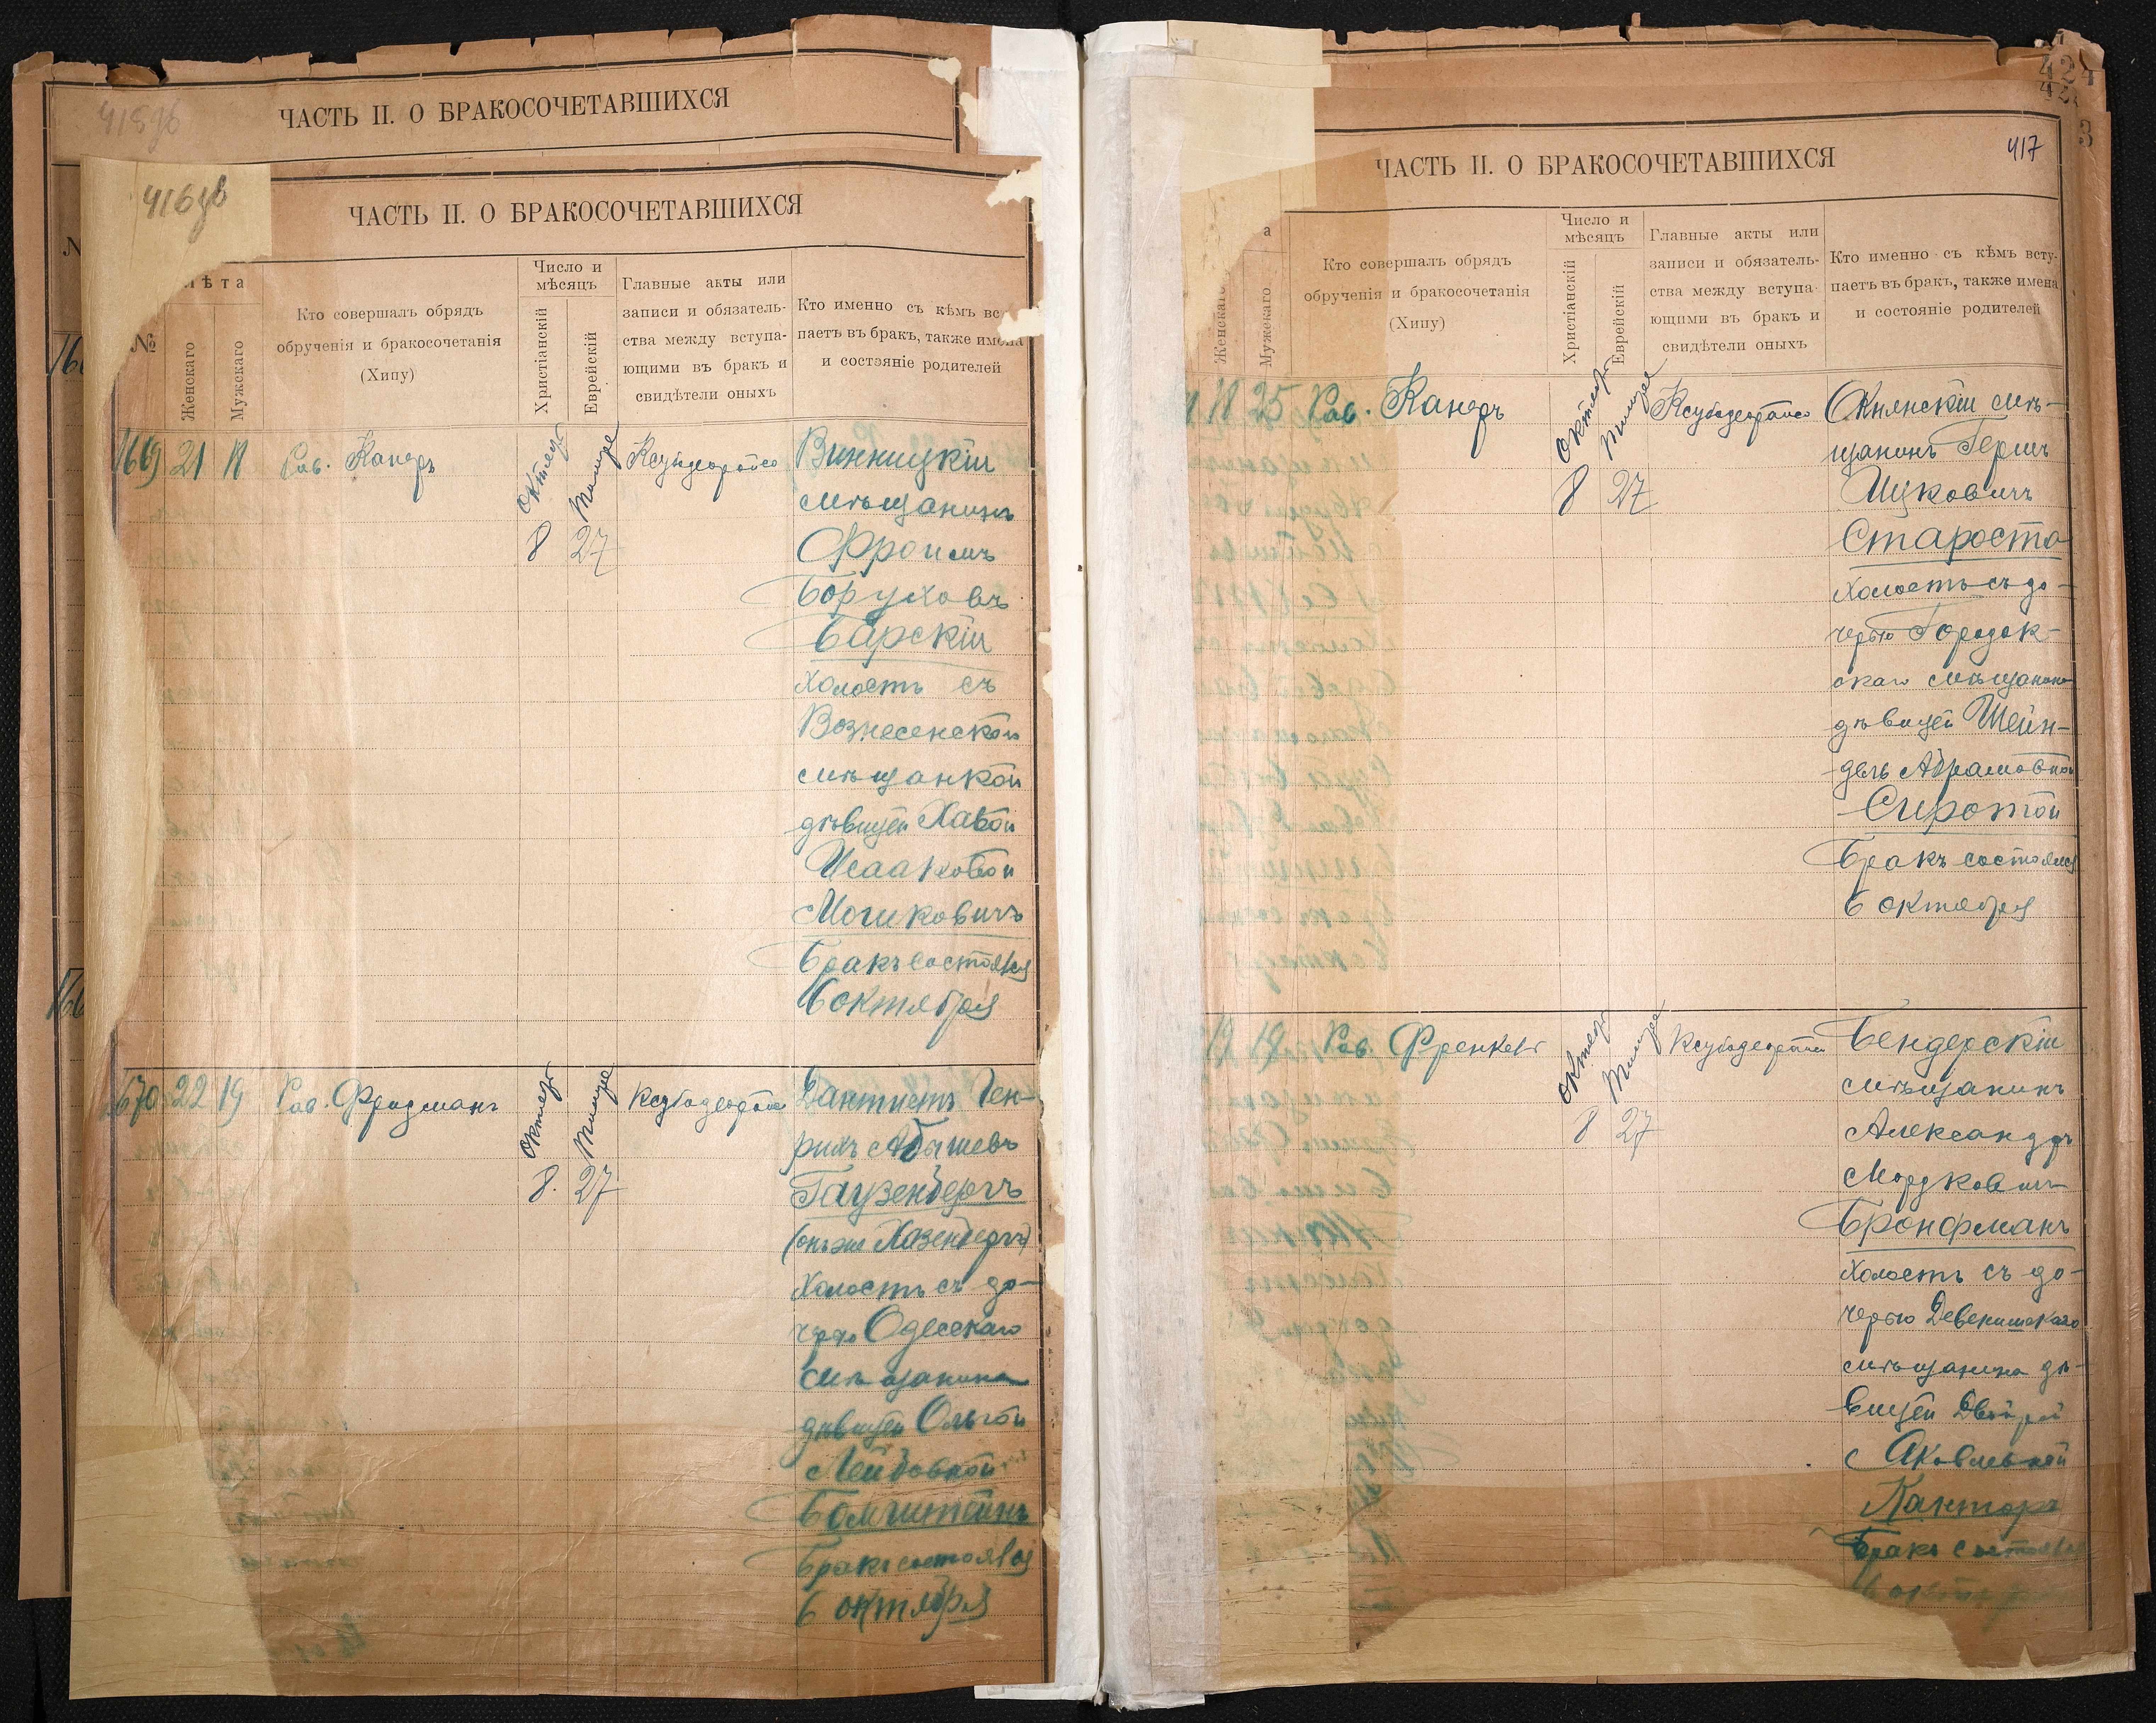 415 об
ЧАСТЬ II. О БРАКОСОЧЕТАВШИХСЯ
416 об
ЧАСТЬ II. О БРАКОСОЧЕТАВШИХСЯ
№
Лѣта
Женскаго
Мужскаго
Кто совершалъ обрядъ
обрученія и бракосочетанія
(Хипу)
Число и
мѣсяцъ
Христіанскій
Еврейскій
Главные акты или
записи и обязатель-
ства между вступа-
ющими въ бракъ и
свидѣтели оныхъ
Кто именно съ кѣмъ всту
паетъ въ бракъ, также имена
и состояніе родителей
1669 21 18 Рав. Канеръ
октяб
Тишре
8 27
Винницкій
мѣщанинъ
Фроимъ
Боруховъ
Барскій
холостъ съ
Вознесенской
мѣщанкой
дѣвицей Хавой
Исааковой
Мошковичъ
Бракъ состоялся
6 октября
1670 22 19 Рав. Фридманъ
октяб
Тишре
8. 27
Дантистъ Ген-
рихъ Абышевъ
Гаузенбергъ
(онъ же Хазенбергъ)
холостъ съ до-
черью Одесскаго
мѣщанина
дѣвицей Ольгой
Лейбовной
Бомштейнъ
Бракъ состоялся
6 октября
424
417
ЧАСТЬ II. О БРАКОСОЧЕТАВШИХСЯ
Женскаго
Мужскаго
Кто совершалъ обрядъ
обрученія и бракосочетанія
(Хипу)
Число и
мѣсяцъ
Христіанскій
Еврейскій
Главные акты или
записи и обязатель-
ства между вступа-
ющими въ бракъ и
свидѣтели оныхъ
Кто именно съ кѣмъ всту-
паетъ въ бракъ, также имена
и состояніе родителей
18 25 Рав. Канеръ
октяб
Тишре
8 27
мѣ-
щанинъ Гершъ
Ицковичъ
Староста
холостъ съ до-
черью Городок-
скаго мѣщанина
дѣвицей Шейн-
дель Абрамовной
Сиротой
Бракъ состоялся
6 октября
19 19 Рав. Френкель
октяб
Тишре
8 27
Бендерскій
мѣщанинъ
Александръ
Мордковичъ
Бронфманъ
холостъ съ до-
черью Девенишскаго
мѣщанина дѣ-
вицей Двойрой
Яковлевной
Канторъ
Бракъ состоялся